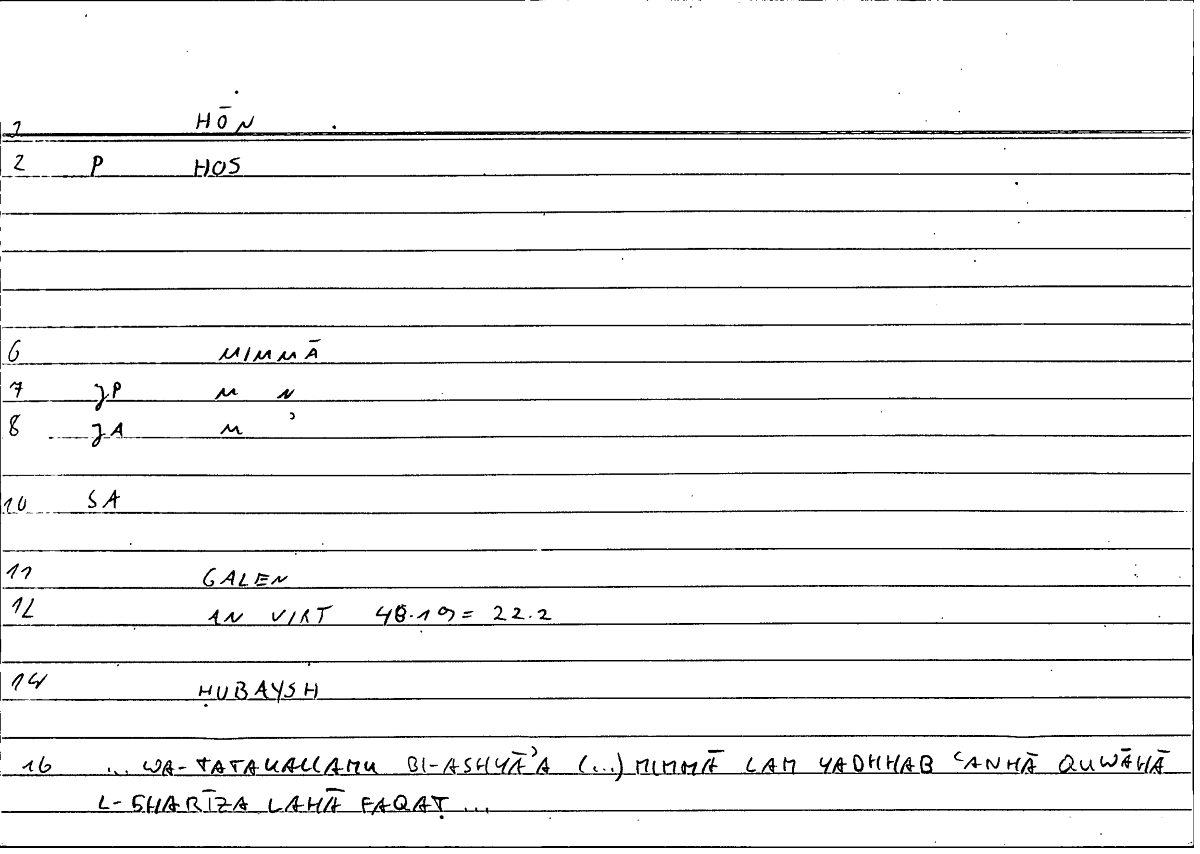 1 HŌN
2 P HOS
6 MIMMĀ
7 JP M N
8 JA M ʾ
10 SA
11 GALEN
12 AN VIRT 48.19 = 22.2
14 ḤUBAYSH
16 ... WA-TATAKALLAMU BI-ASHYĀʾA (...) MIMMĀ LAM YADHHAB ʿANHĀ QUWĀHĀ
L-GHARĪZA LAHĀ FAQAṬ ...